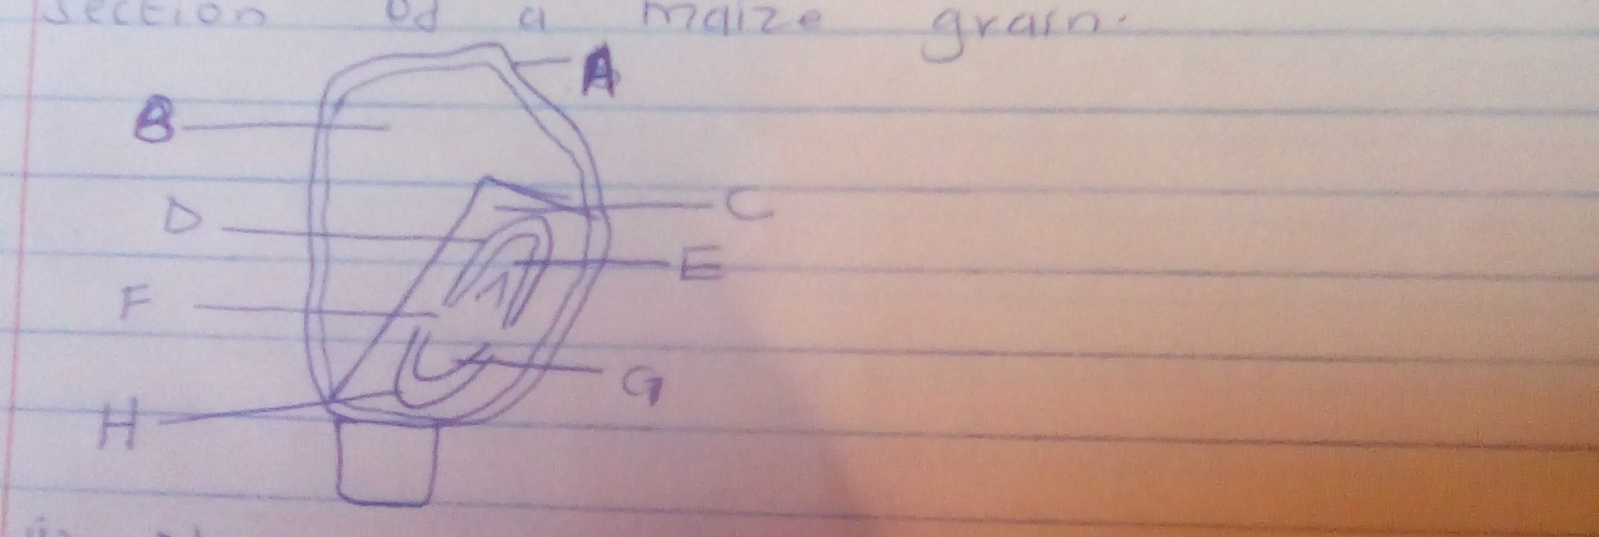 section od a maize grain.
A
B
C
D
E
F
G
H